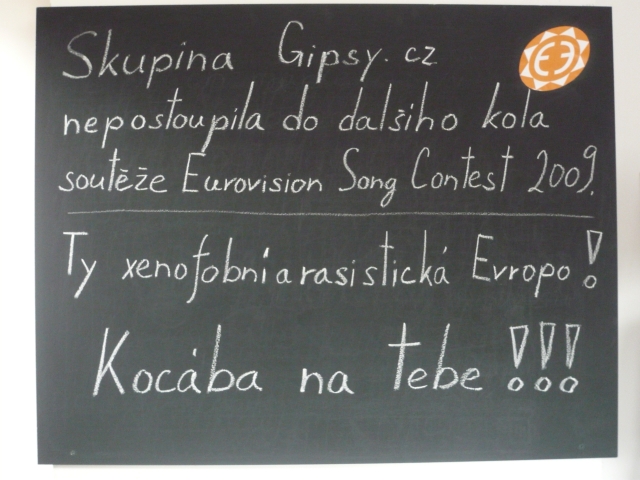 Skupina Gipsy.cz
nepostoupila do dalšího kola
soutěže Eurovision Song Contest 2009.
Ty xenofobní a rasistická Evropo!
Kocába na tebe !!!